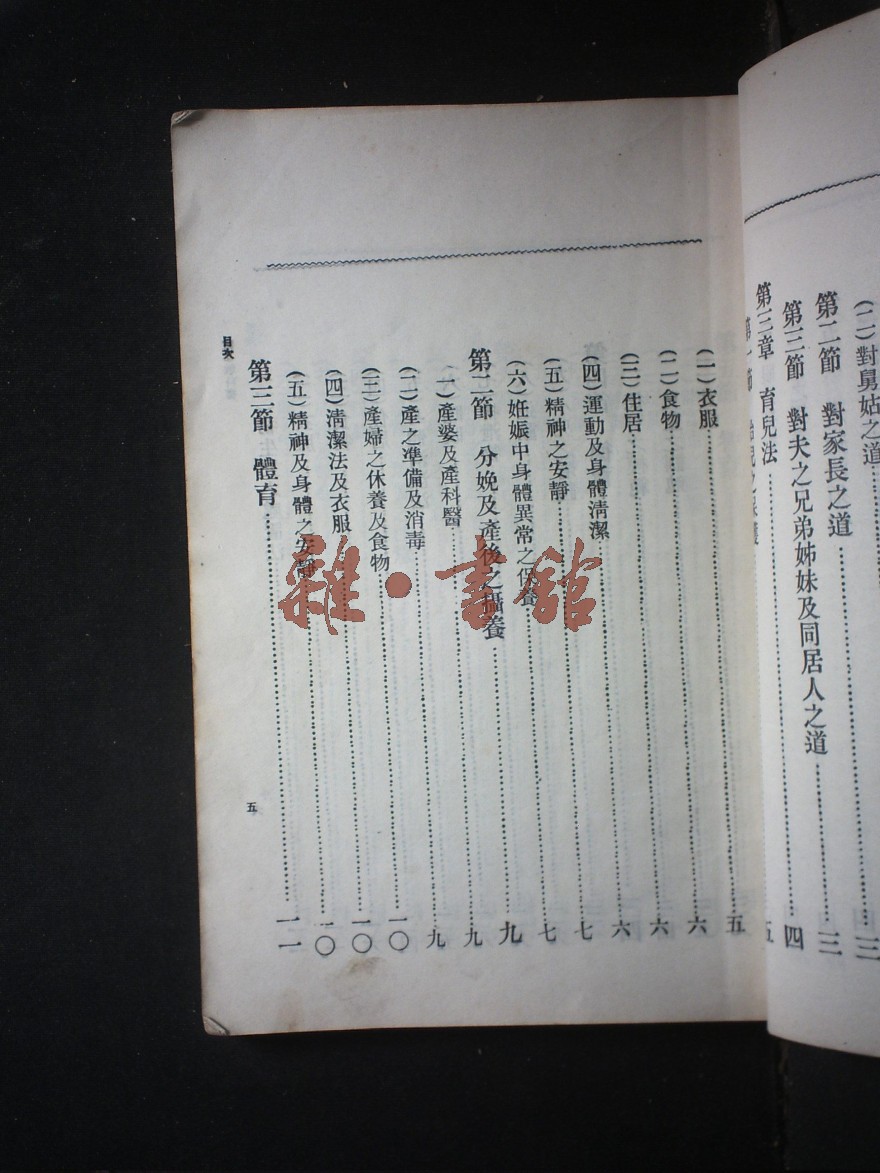 (二)對舅姑之道
第二節 對家長之道……三
第三節 對夫之兄弟姊妹及同居人之道……三
第三章 育兒法……四
第一節 胎兒之保護……五
(一)衣服……五
(二)食物……六
(三)住居……六
(四)運動及身體淸潔……六
(五)精神之安靜……七
(六)妊娠中身體異常之保養……七
第二節 分娩及產後之攝養……九
(一)產婆及產科醫……九
(二)產之準備及消毒……九
(三)產婦之休養及食物……一〇
(四)淸潔法及衣服……一〇
(五)精神及身體之安靜……一〇
第三節 體育……一一
目次
五
雜·書館